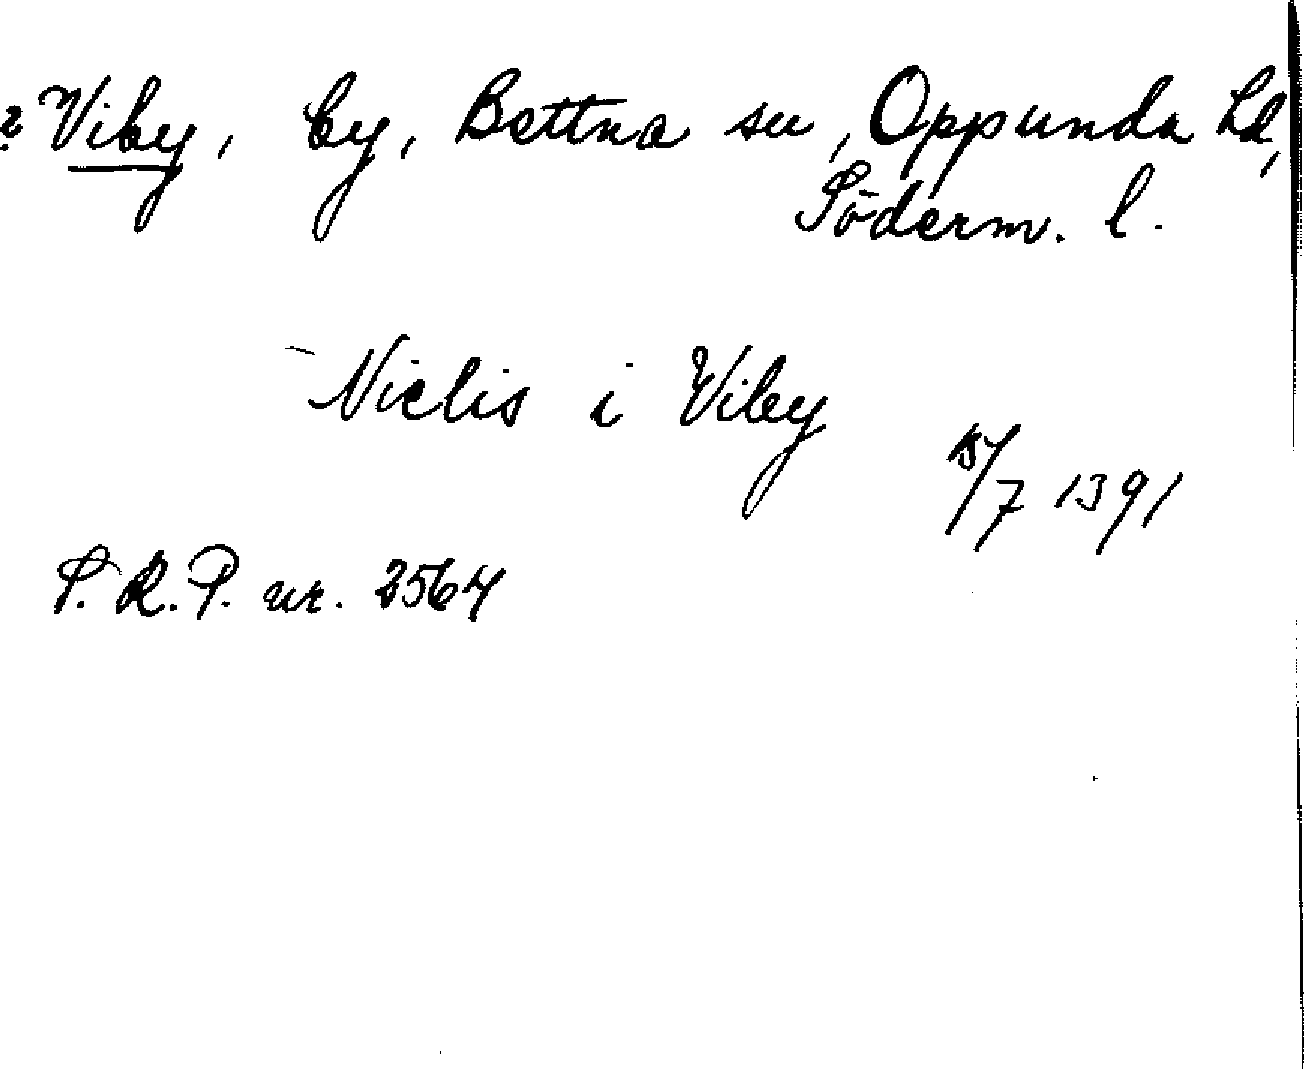 ? Viby, by, Bettna sn, Oppunda hd,
Söderm. l.
Niclis i Viby
15/7 1391
S. R. P. nr. 2564